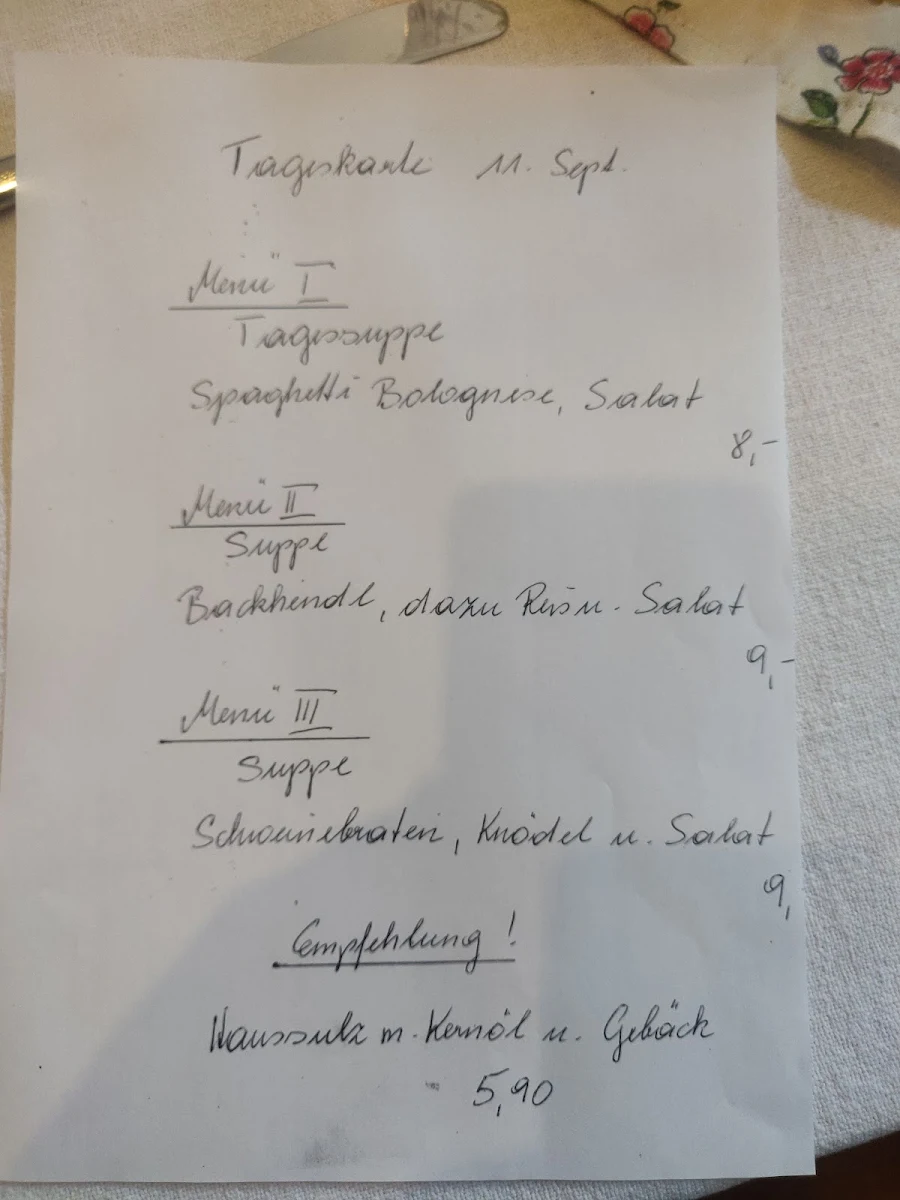 Tageskarte 11. Sept.
Menü I
Tagessuppe
Spaghetti Bolognese, Salat
8,-
Menü II
Suppe
Backhendl, dazu Reis u. Salat
9,-
Menü III
Suppe
Schweinebraten, Knödel u. Salat
9,
Empfehlung!
Haussulz m. Kernöl u. Gebäck
5,90